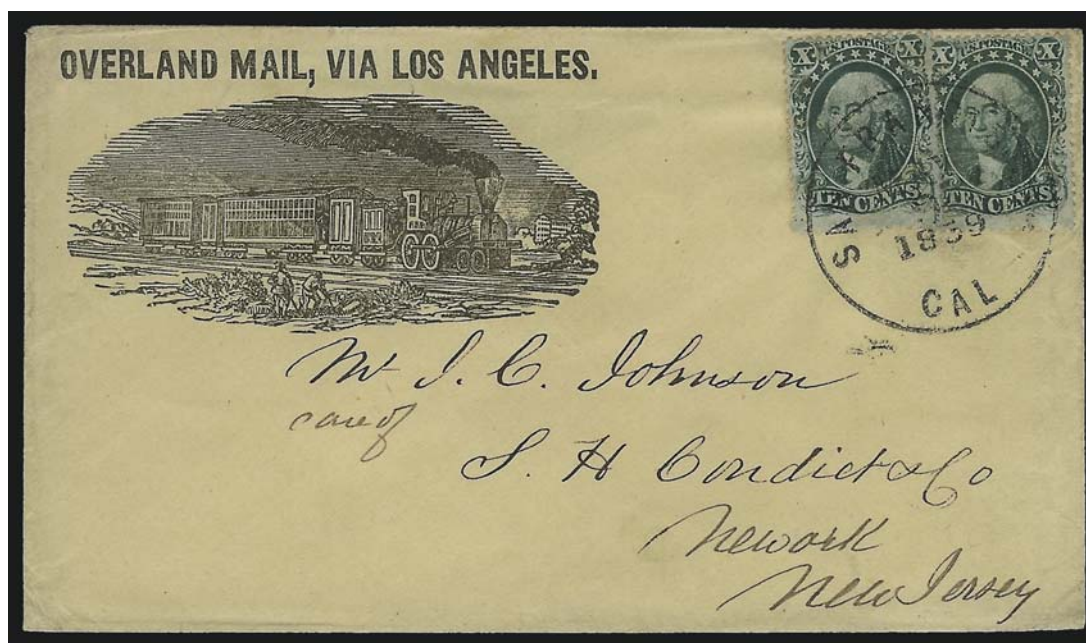 OVERLAND MAIL, VIA LOS ANGELES.
X U.S. POSTAGE X
TEN CENTS
X U.S. POSTAGE X
TEN CENTS
SAN FRAN
1859
CAL
Mr J. C. Johnson
care of
S. H Condict & Co
Newark
New Jersey